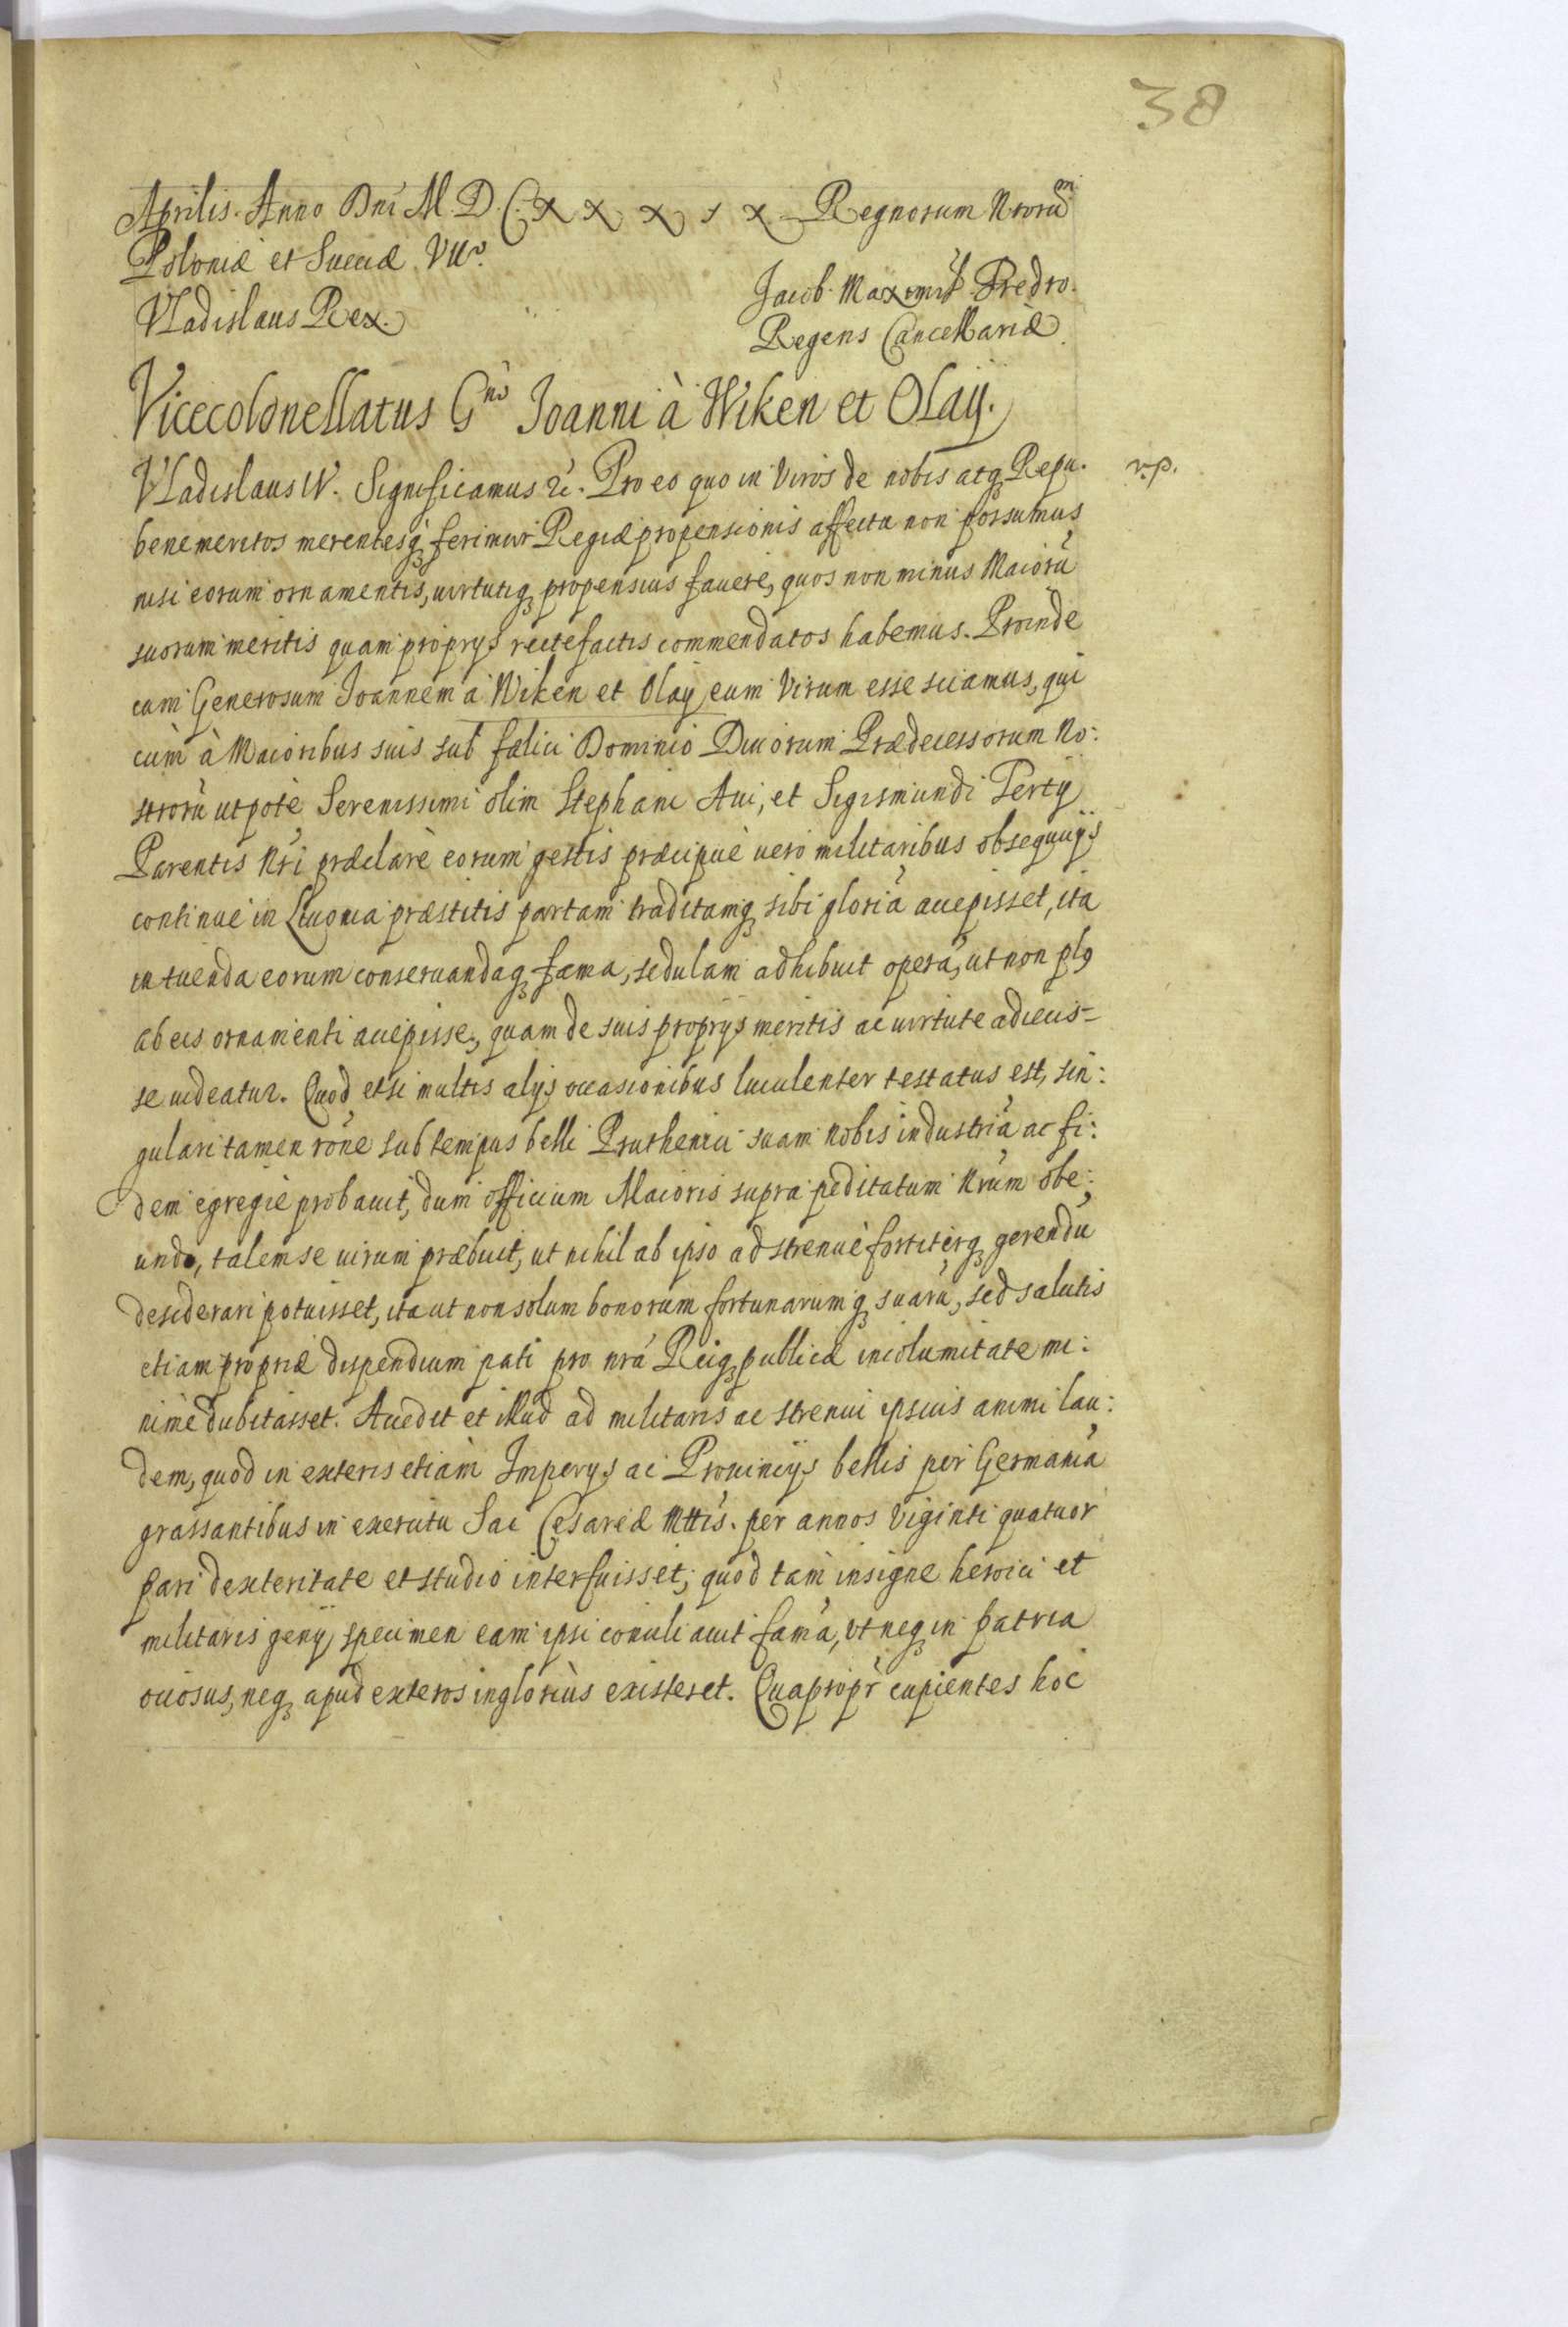 38
Aprilis. Anno Dnì M. D. C. X X X I X Regnorum Nrorũ
Poloniæ et Sueciæ VIIº.
Vladislaus Rex.
Jacob. Maxymil. Fredro.
Regens Cancellariæ
Vicecolonellatus Gno Joanni à Wiken et Olaÿ.
Vladislaus IV. Significamus &c. Pro eo quo in Viros de nobis atq Repu. v.p.
benemeritos merentesq ferimur Regiæ propensionis affectu non possumus
nisi eorum ornamentis, uirtutiq propensius fauere, quos non minus Maiorũ
suorum meritis quam proprys rectefactis commendatos habemus. Proinde
cum Generosum Joannem à Wiken et Olaÿ eum Virum esse sciamus, qui
cùm à Maioribus suis sub fælici Dominio Diuorum Prædecessorum No:
strorũ utpotè Serenissimi olim Stephani Aui, et Sigismundi Tertÿ
Parentis Nrì præclarè eorum gestis præcipuè uerò militaribus obsequÿs
continuè in Liuonia præstitis partam traditamq sibi gloriã accepisset, ita
in tuenda eorum conseruandaq fama, sedulam adhibuit operã, ut non pl9
ab eis ornamenti accepisse, quam de suis proprÿs meritis ac uirtute adiecis-
se uideatur. Quod etsi multis alÿs occasionibus luculenter testatus est, sin:
gulari tamen rõne sub tempus belli Pruthenici suam nobis industriã ac fi:
dem egregiè probauit, dum officium Maioris supra peditatum Nrũm obe:
undo, talem se uirum præbuit, ut nihil ab ipso ad strenuè fortiterq gerendũ
desiderari potuisset, ita ut non solum bonorum fortunarumq suarũ, sed salutis
etiam propriæ dispendium pati pro nrã Reiq publicæ incolumitate mi:
nimè dubitasset. Accedit et illud ad militaris ac strenui ipsius animi lau:
dem, quod in exteris etiàm Imperys ac Prouincÿs bellis per Germaniã
grassantibus in exercitu Sac Cesareæ Mttis. per annos Viginti quatuor
pari dexteritate et studio interfuisset; quod tàm insigne heroici et
militaris genÿ specimen eam ipsi conciliauit famã, ut neq in patria
ociosus, neq apud exteros inglorius existeret. Quapropr̀ cupientes hoc